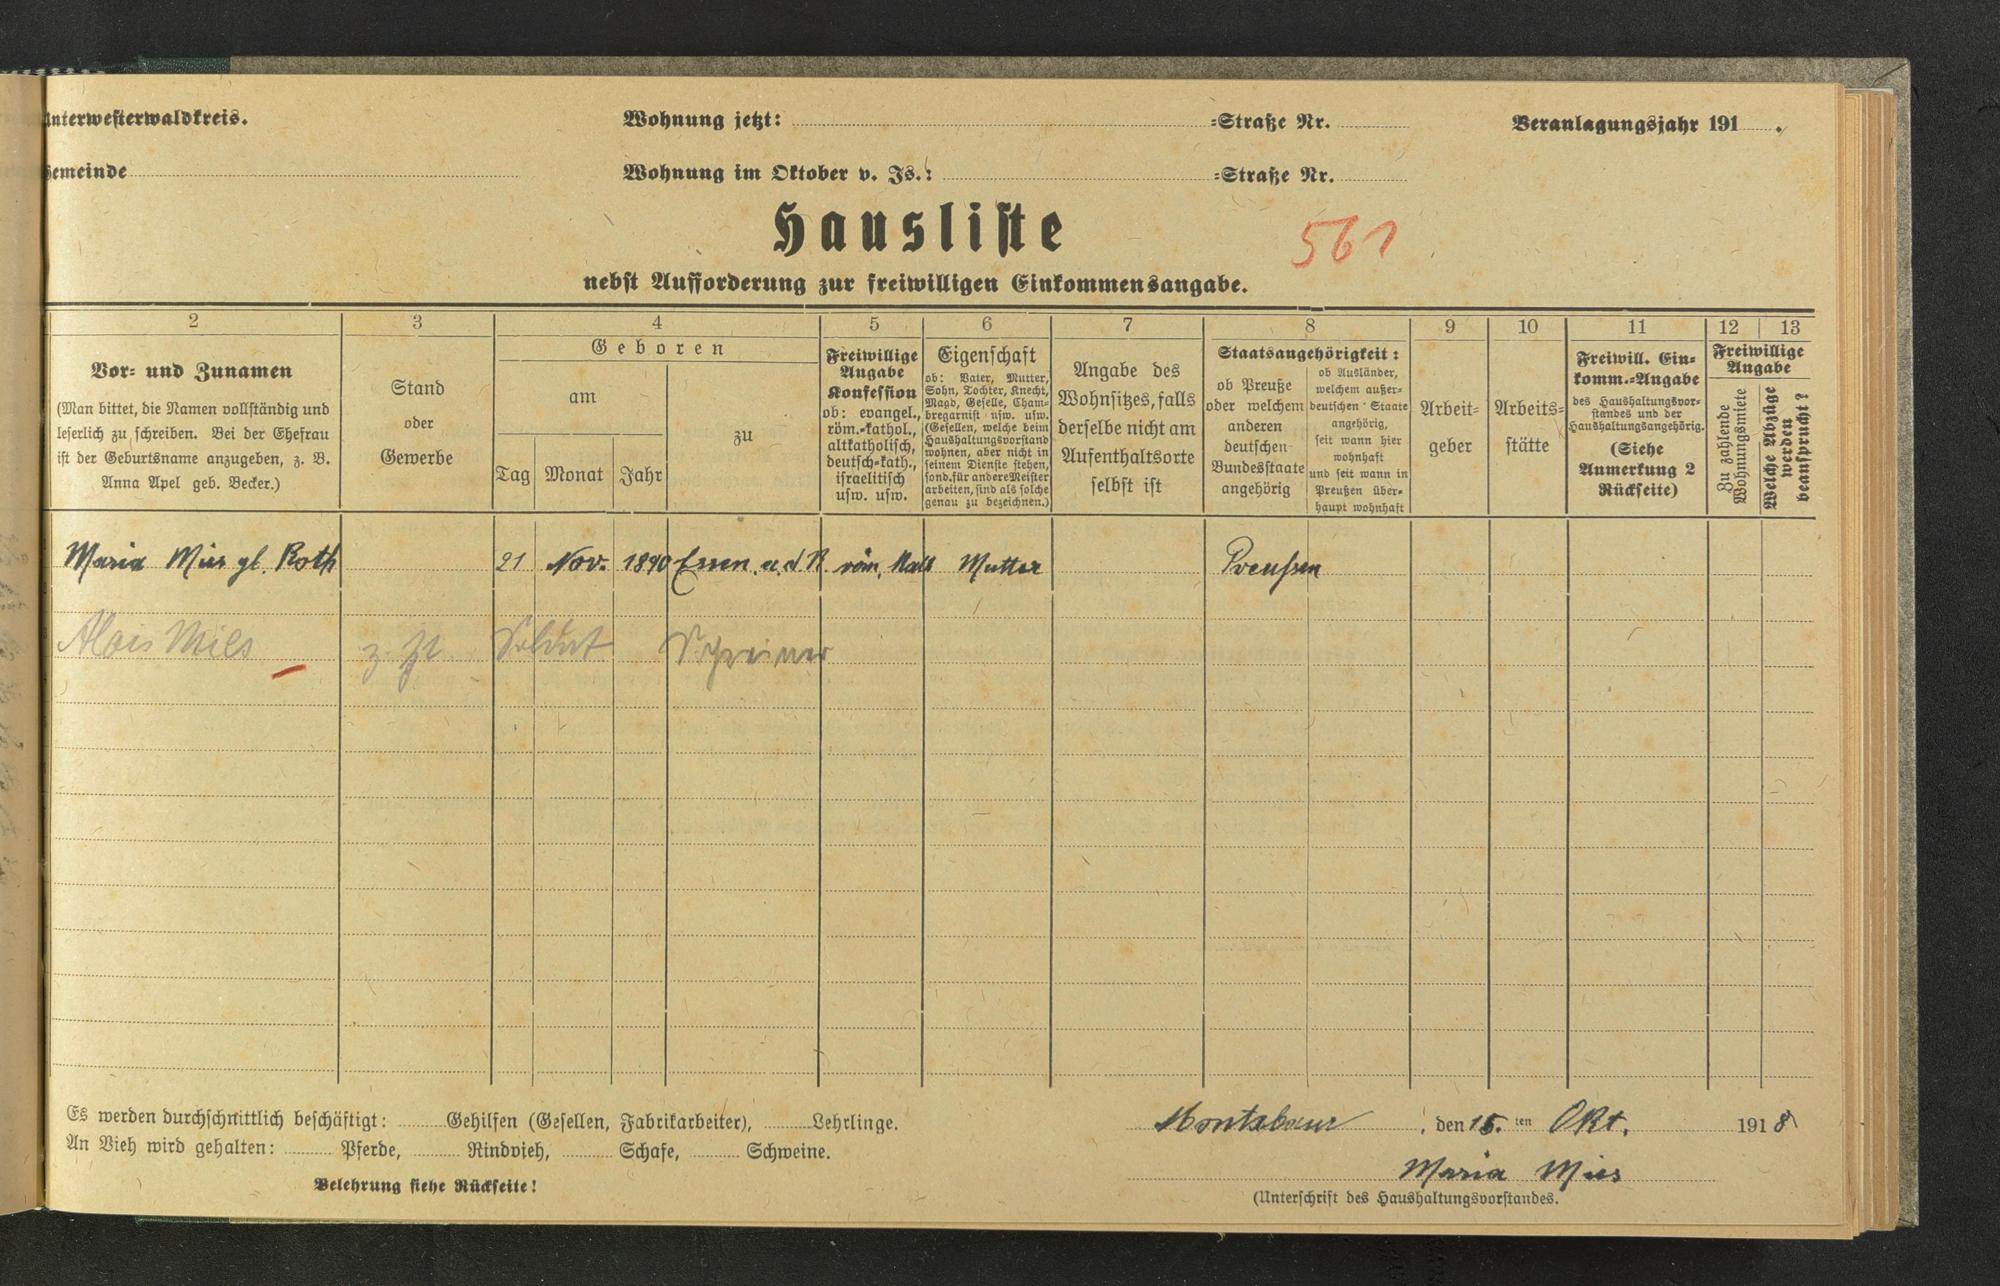 Unterwesterwaldkreis.
Wohnung jetzt: -Straße Nr.
Veranlagungsjahr 191 .
Gemeinde
Wohnung im Oktober v. Js.: -Straße Nr.
Hausliste
561
nebst Aufforderung zur freiwilligen Einkommensangabe.
2 3 4 5 6 7 8 9 10 11 12 13
Vor- und Zunamen
(Man bittet, die Namen vollständig und
leserlich zu schreiben. Bei der Ehefrau
ist der Geburtsname anzugeben, z. B.
Anna Apel geb. Becker.)
Stand
oder
Gewerbe
Geboren
am
Tag Monat Jahr
zu
Freiwillige
Angabe
Konfession
ob: evangel.,
röm.-kathol.,
altkatholisch,
deutsch-kath.,
israelitisch
usw. usw.
Eigenschaft
ob: Vater, Mutter,
Sohn, Tochter, Knecht,
Magd, Geselle, Cham-
bregarnist usw. usw.
(Gesellen, welche beim
Haushaltungsvorstand
wohnen, aber nicht in
seinem Dienste stehen,
sond. für andere Meister
arbeiten, sind als solche
genau zu bezeichnen.)
Angabe des
Wohnsitzes, falls
derselbe nicht am
Aufenthaltsorte
selbst ist
Staatsangehörigkeit:
ob Preuße
oder welchem
anderen
deutschen
Bundesstaate
angehörig
ob Ausländer,
welchem außer-
deutschen Staate
angehörig,
seit wann hier
wohnhaft
und seit wann in
Preußen über-
haupt wohnhaft
Arbeit-
geber
Arbeits-
stätte
Freiwill. Ein-
komm.-Angabe
des Haushaltungsvor-
standes und der
Haushaltungsangehörig.
(Siehe
Anmerkung 2
Rückseite)
Freiwillige
Angabe
Zu zahlende
Wohnungsmiete
Welche Abzüge
werden
beansprucht?
Maria Mies gb. Roth 21 Nov. 1890 Essen a. d. R. röm. Kath Mutter Preußen
Alois Mies z. Zt. Soldat Schreiner
Es werden durchschnittlich beschäftigt: Gehilfen (Gesellen, Fabrikarbeiter), Lehrlinge.
An Vieh wird gehalten: Pferde, Rindvieh, Schafe, Schweine.
Belehrung siehe Rückseite!
Montabaur, den 15. ten Okt. 1918
Maria Mies
(Unterschrift des Haushaltungsvorstandes.